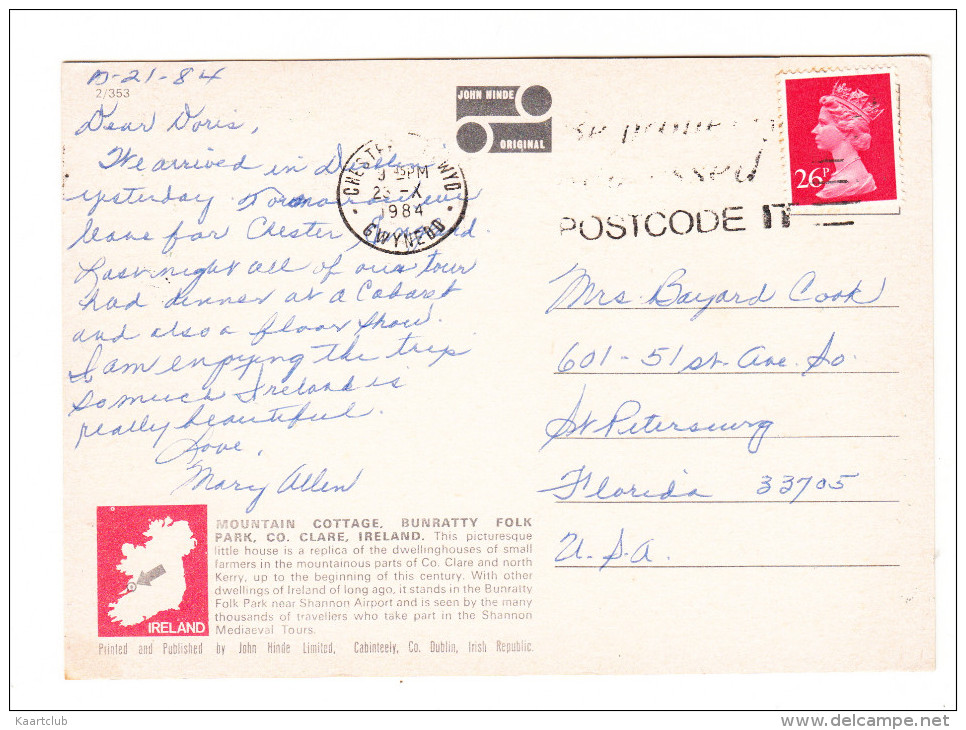 10-21-84
2/353
Dear Doris,
We arrived in Dublin
yesterday. Tomorrow we
leave for Chester, England.
Last night all of our tour
had dinner at a Cabaret
and also a floor show.
I am enjoying the trip
so much Ireland is
really beautiful.
Love,
Mary Allen
JOHN HINDE
ORIGINAL
CHESTER CLWYD
9 45PM
23 - X
1984
GWYNEDD
POSTCODE IT
26P
Mrs. Bayard Cook
601-51 st. Ave. So.
St Petersburg
Florida 33705
U.S.A.
IRELAND
MOUNTAIN COTTAGE, BUNRATTY FOLK
PARK, CO. CLARE, IRELAND. This picturesque
little house is a replica of the dwellinghouses of small
farmers in the mountainous parts of Co. Clare and north
Kerry, up to the beginning of this century. With other
dwellings of Ireland of long ago, it stands in the Bunratty
Folk Park near Shannon Airport and is seen by the many
thousands of travellers who take part in the Shannon
Mediaeval Tours.
Printed and Published by John Hinde Limited, Cabinteely, Co. Dublin, Irish Republic.
Kaartclub
www.delcampe.net